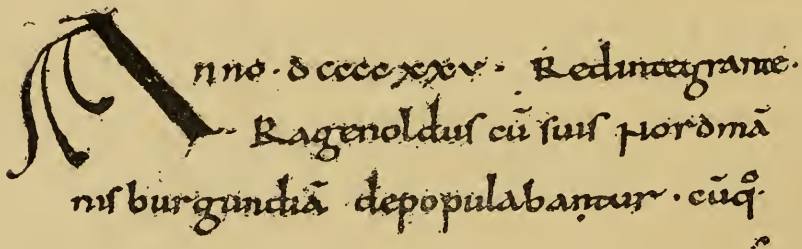 Anno · dccccxxv · Redintegrante ·
Ragenoldus cū suis Nordmā
nis burgundiā depopulabantur · cūq̊·